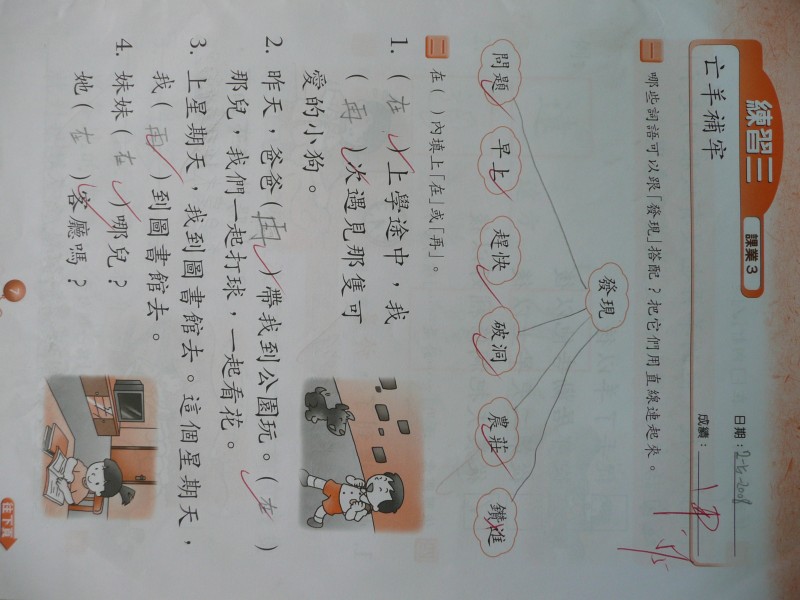 練習三
課業 3
亡羊補牢
日期：
成績：
一 哪些詞語可以跟「發現」搭配？把它們用直線連起來。
發現
問題 早上 趕快 破洞 農莊 鑽進
二 在（ ）內填上「在」或「再」。
1. （在）上學途中，我
（再）次遇見那隻可
愛的小狗。
2. 昨天，爸爸（再）帶我到公園玩。（在）
那兒，我們一起打球，一起看花。
3. 上星期天，我到圖書館去。這個星期天，
我（再）到圖書館去。
4. 妹妹（在）哪兒？
她（在）客廳嗎？
7
往下頁